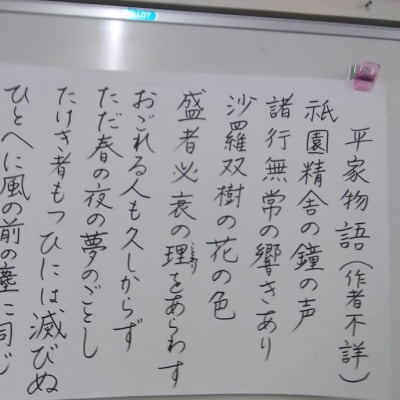 平家物語(作者不詳)
祇園精舎の鐘の声
諸行無常の響きあり
沙羅双樹の花の色
盛者必衰の理をあらわす
おごれる人も久しからず
ただ春の夜の夢のごとし
たけき者もつひには滅びぬ
ひとへに風の前の塵に同じ